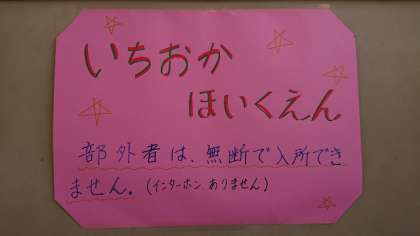 いちおか
ほいくえん
部外者は、無断で入所でき
ません。(インターホン ありません)